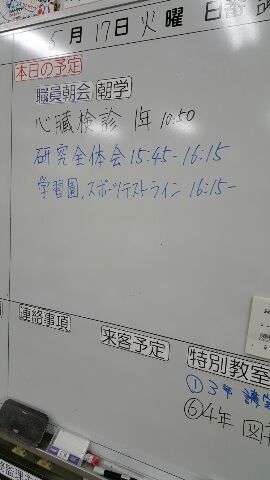 6月17日火曜日
本日の予定
職員朝会 朝学
心臓検診 1年 10:50
研究全体会 15:45-16:15
学習園、スポーツテストライン 16:15-
連絡事項
来客予定
特別教室
① 3年
⑥ 4年 図